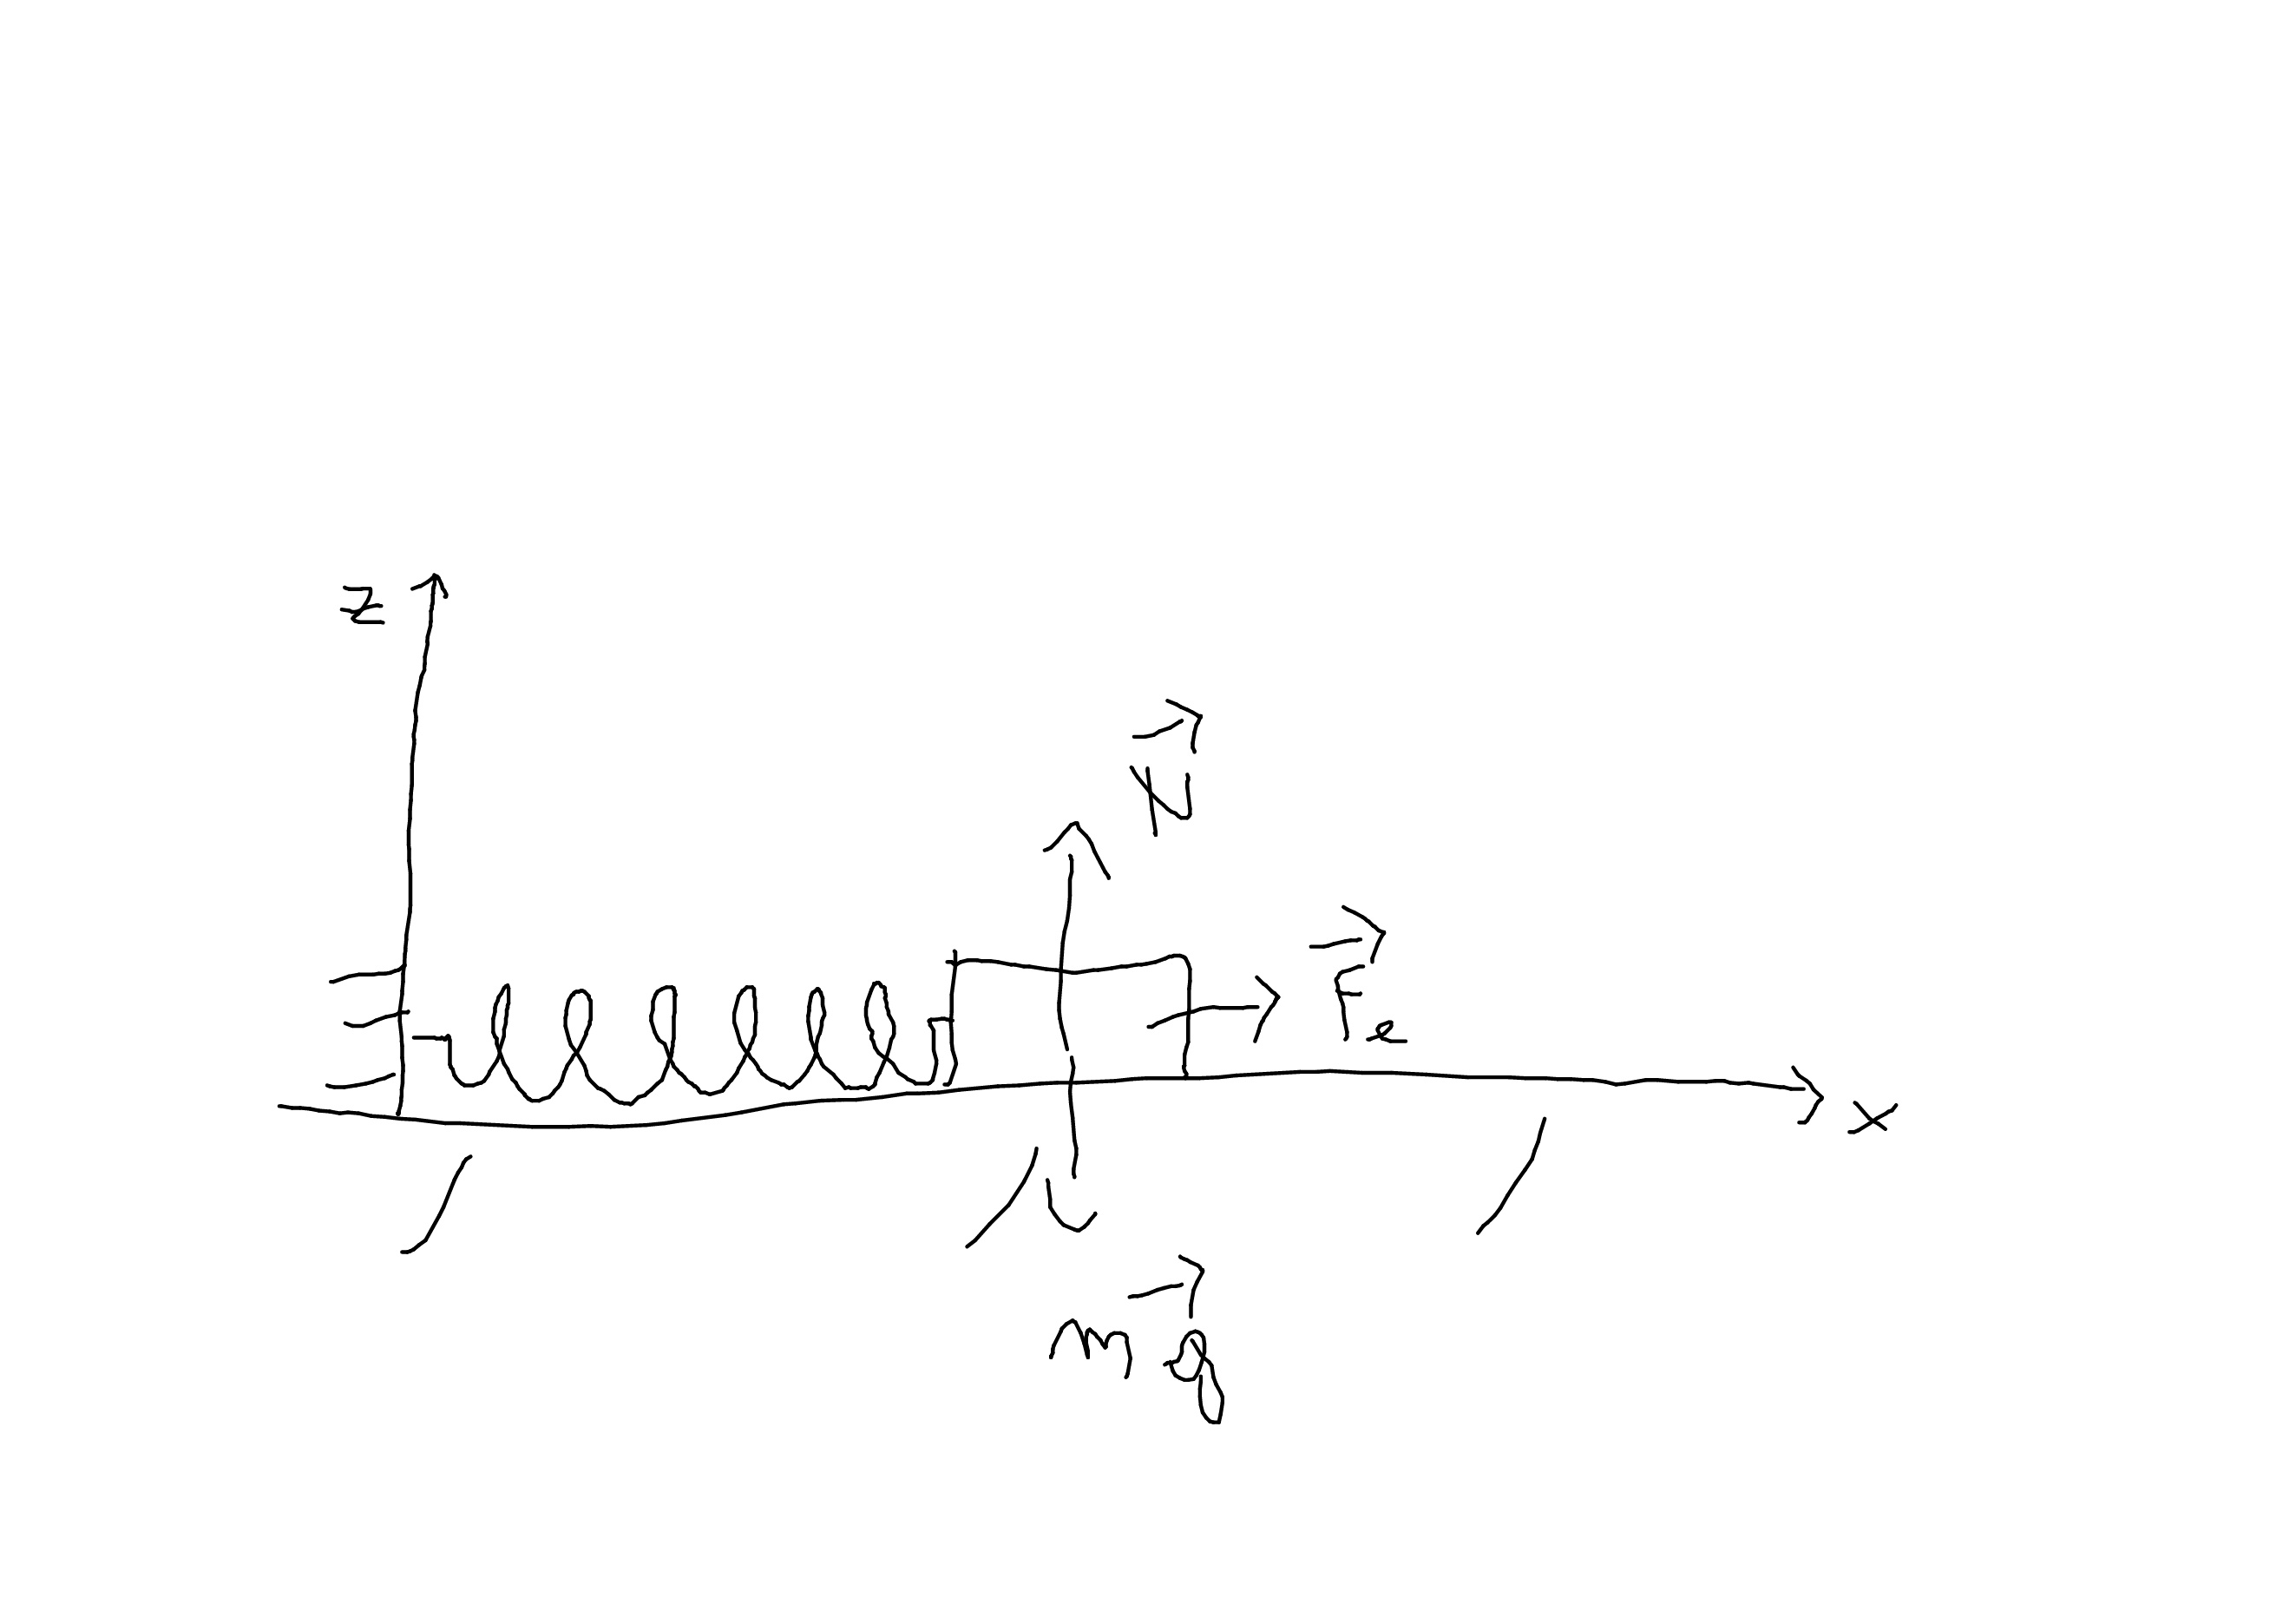 z
N⃗
F⃗₂
x
m g⃗